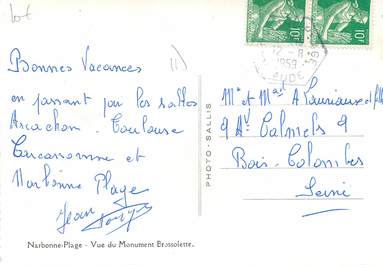 lot
Bonnes Vacances
en passant par les
Arcachon. Toulouse
Carcassonne et
Narbonne Plage
Jean
(1)
10F
10F
12 - 8
1959
AUDE
PHOTO - SALLIS
Mr et
9 Av Calmels 9
Bois-Colombes
Seine
Narbonne-Plage - Vue du Monument Brossolette.